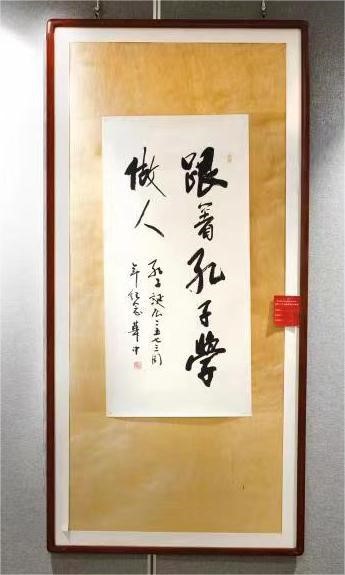 跟着孔子学
做人
孔子诞辰二五七三周
年 华中